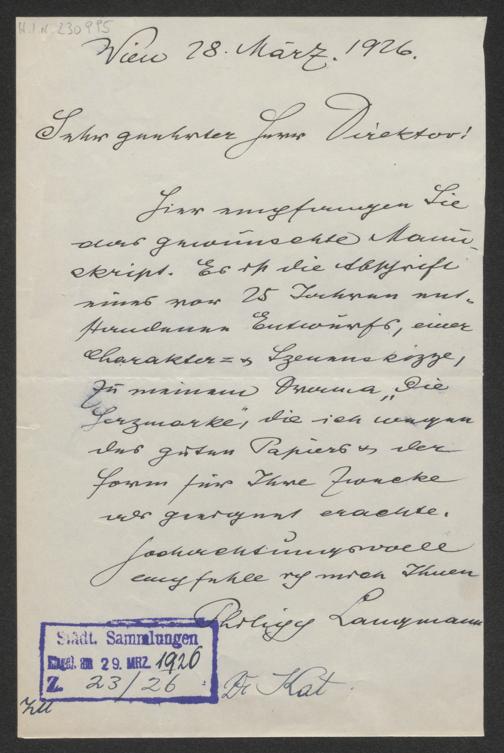 H.I.N. 230995
Wien 28. März. 1926.
Sehr geehrter Herr Direktor!
Hier empfangen Sie
das gewünschte Manu-
skript. Es ist die Abschrift
eines vor 25 Jahren ent-
standenen Entwurfs, einer
Charakter= & Szenenskizze,
zu meinem Drama „Die
Herzmarke", die ich wegen
des guten Papiers & der
Form für Ihre Zwecke
als geeignet erachte.
Hochachtungsvoll
empfehle ich mich Ihnen
Philipp Langmann
Städt. Sammlungen
Eingel. am 29. MRZ. 1926
Z. 23/26
Dr Kat.